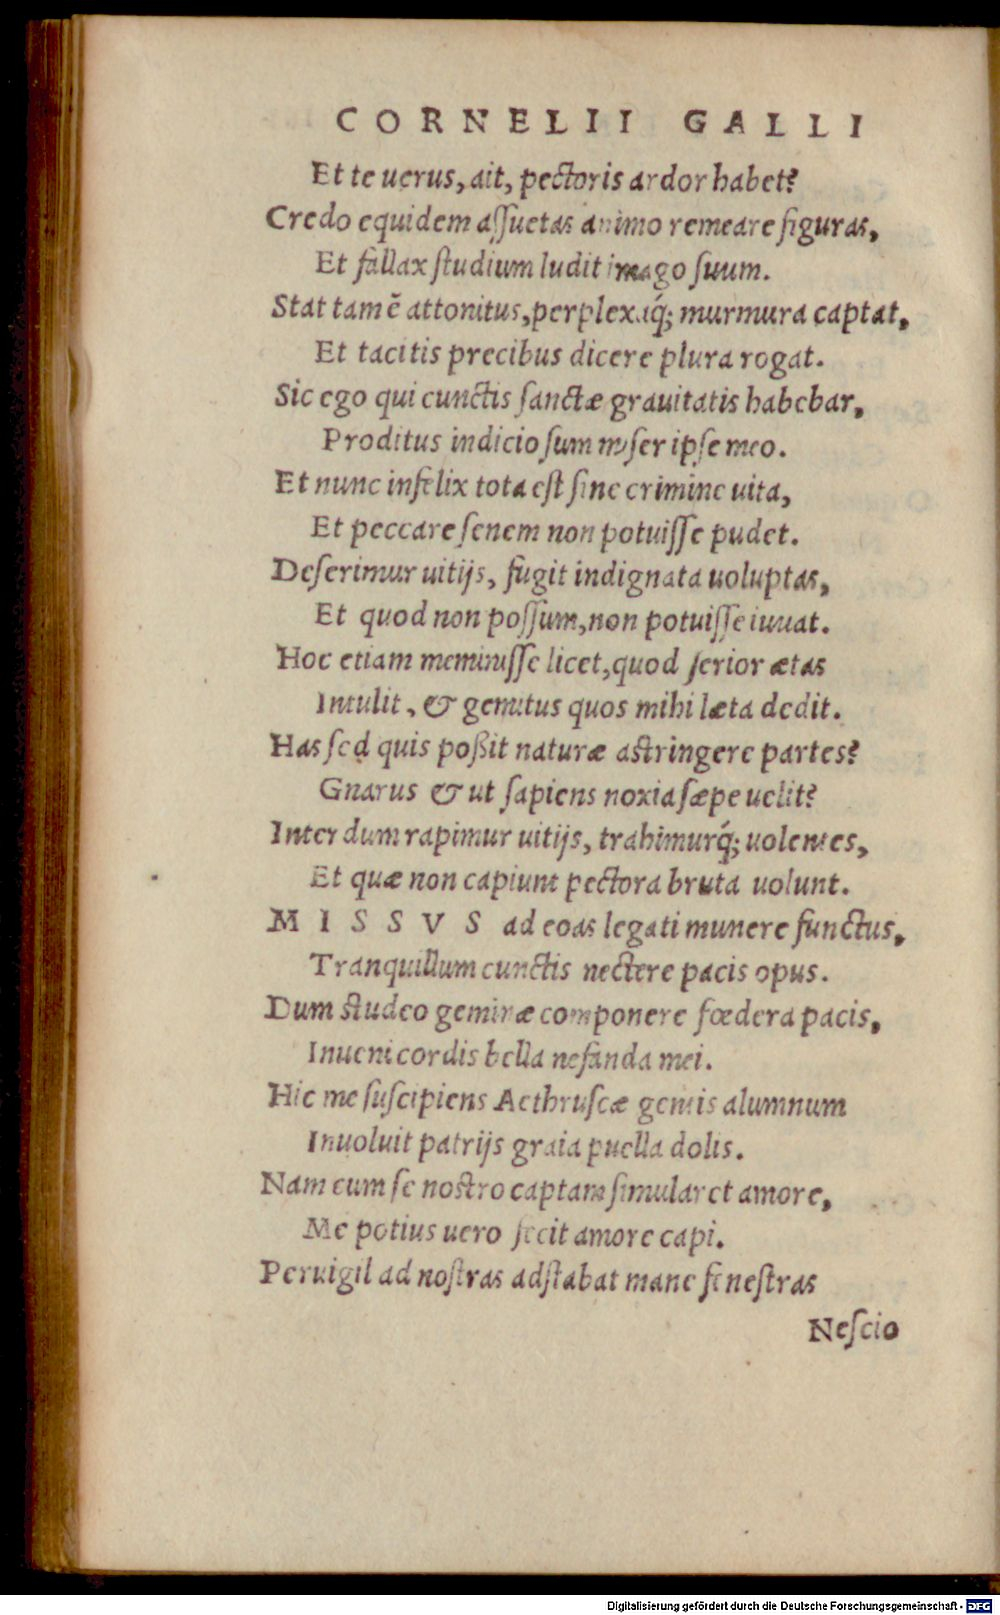 CORNELII GALLI
Et te uerus, ait, pectoris ardor habet?
Credo equidem aſſuetas animo remeare figuras,
Et fallax ſtudium ludit imago ſuum.
Stat tamē attonitus, perplexaq́; murmura captat,
Et tacitis precibus dicere plura rogat.
Sic ego qui cunctis ſanctæ grauitatis habebar,
Proditus indicio ſum miſer ipſe meo.
Et nunc infelix tota eſt ſine crimine uita,
Et peccare ſenem non potuiſſe pudet.
Deſerimur uitijs, fugit indignata uoluptas,
Et quod non poſſum, non potuiſſe iuuat.
Hoc etiam meminiſſe licet, quod ſerior ætas
Intulit, & gemitus quos mihi læta dedit.
Has ſed quis poßit naturæ astringere partes?
Gnarus & ut ſapiens noxia ſæpe uelit?
Interdum rapimur uitijs, trahimurq́; uolentes,
Et quæ non capiunt pectora bruta uolunt.
MISSVS ad eoas legati munere functus,
Tranquillum cunctis nectere pacis opus.
Dum studeo geminæ componere fœdera pacis,
Inueni cordis bella nefanda mei.
Hic me ſuſcipiens Aethruſcæ gentis alumnum
Inuoluit patrijs graia puella dolis.
Nam cum ſe nostro captam ſimularet amore,
Me potius uero fecit amore capi.
Peruigil ad noſtras adſtabat mane feneſtras
Neſcio
Digitalisierung gefördert durch die Deutsche Forschungsgemeinschaft - DFG